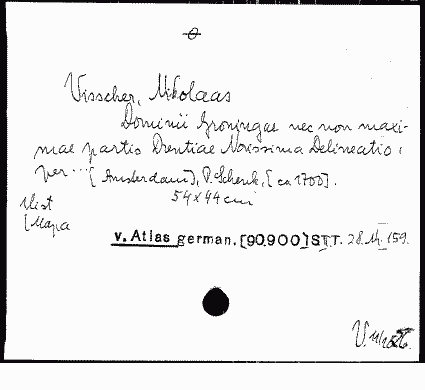 Visscher, Nikolaas
Dominii Groningae nec non maxi-
mae partis Drentiae Novissima Delineatio
per ... [Amsterdam], P. Schenk, [ca 1700].
54 x 44 cm
[Mapa
v. Atlas german. [90.900] ST T. 28. 159.